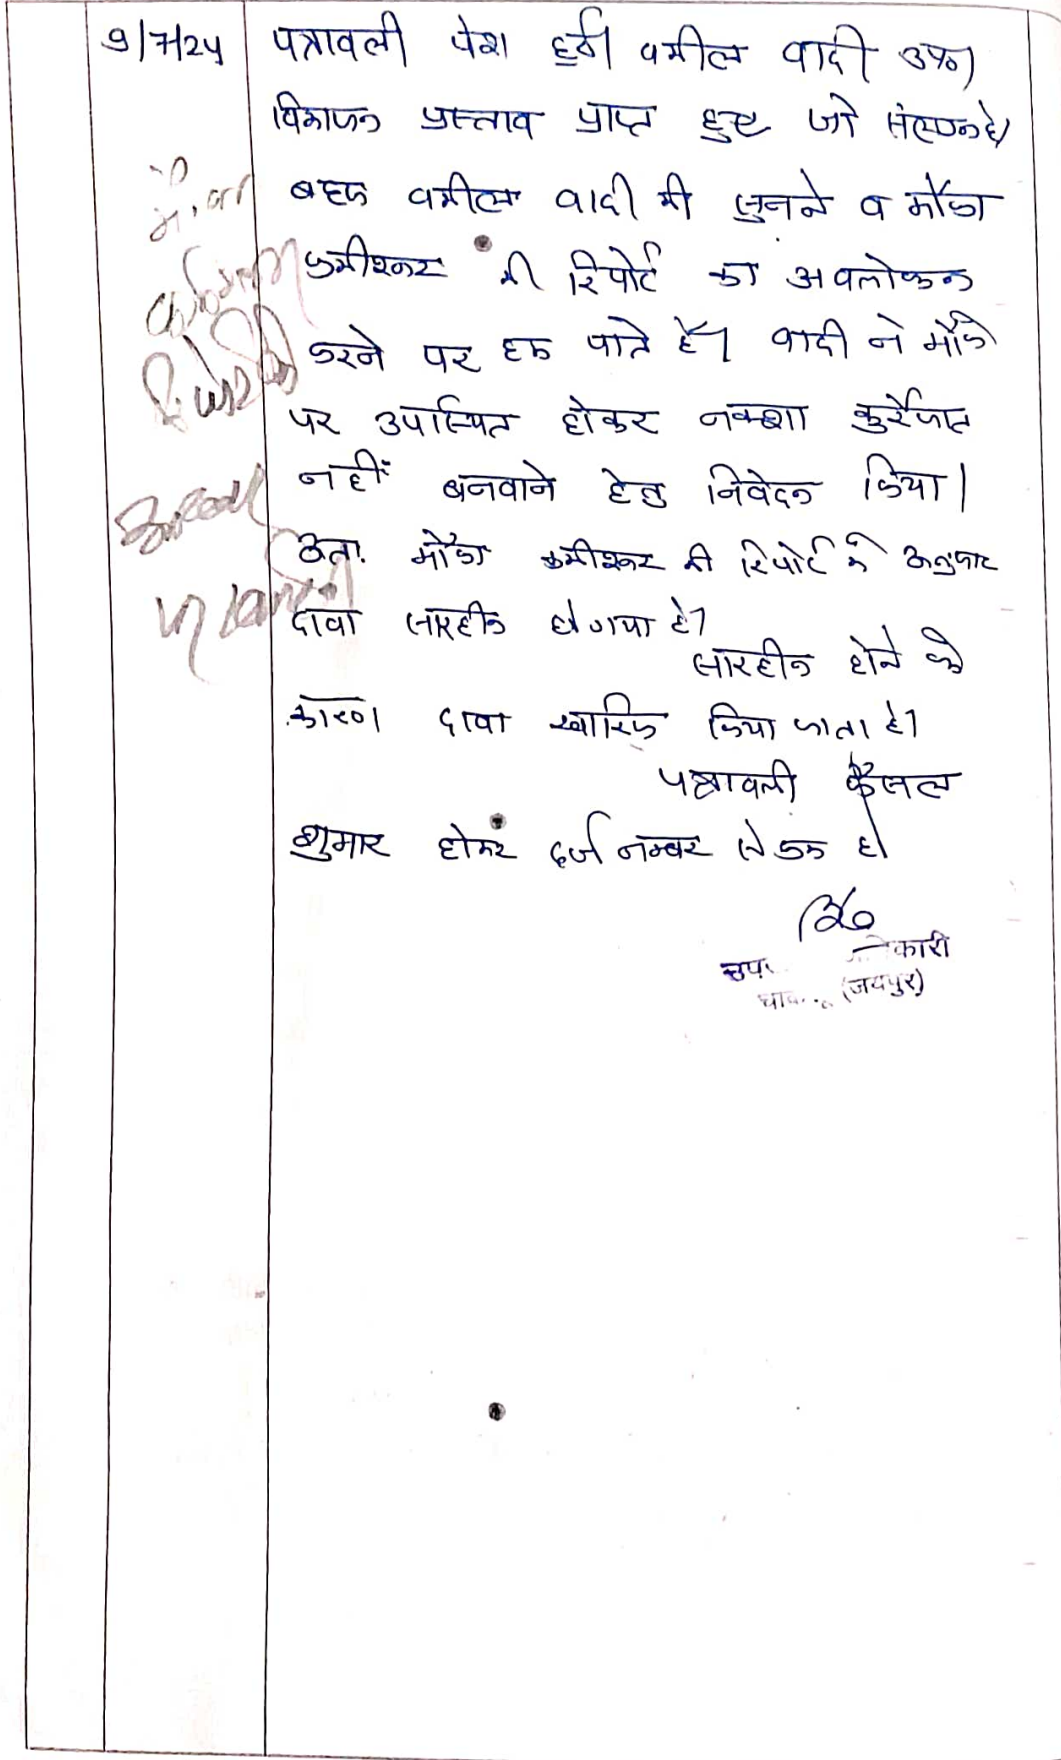 9/7/24 पत्रावली पेश हुई। वकील वादी उप०।
विभाजन प्रस्ताव प्राप्त हुए जो संलग्न है।
बहस वकील वादी की सुनने व मौका
कमीश्नर की रिपोर्ट का अवलोकन
करने पर हम पाते हैं। वादी ने मौके
पर उपस्थित होकर नक्शा कुर्रेजात
नहीं बनवाने हेतु निवेदन किया।
अतः मौका कमीश्नर की रिपोर्ट के अनुसार
दावा सारहीन हो गया है।
सारहीन होने के
कारण दावा खारिज किया जाता है।
पत्रावली फैसल
शुमार होकर दर्ज नम्बर से कम हो
उप
(जयपुर)